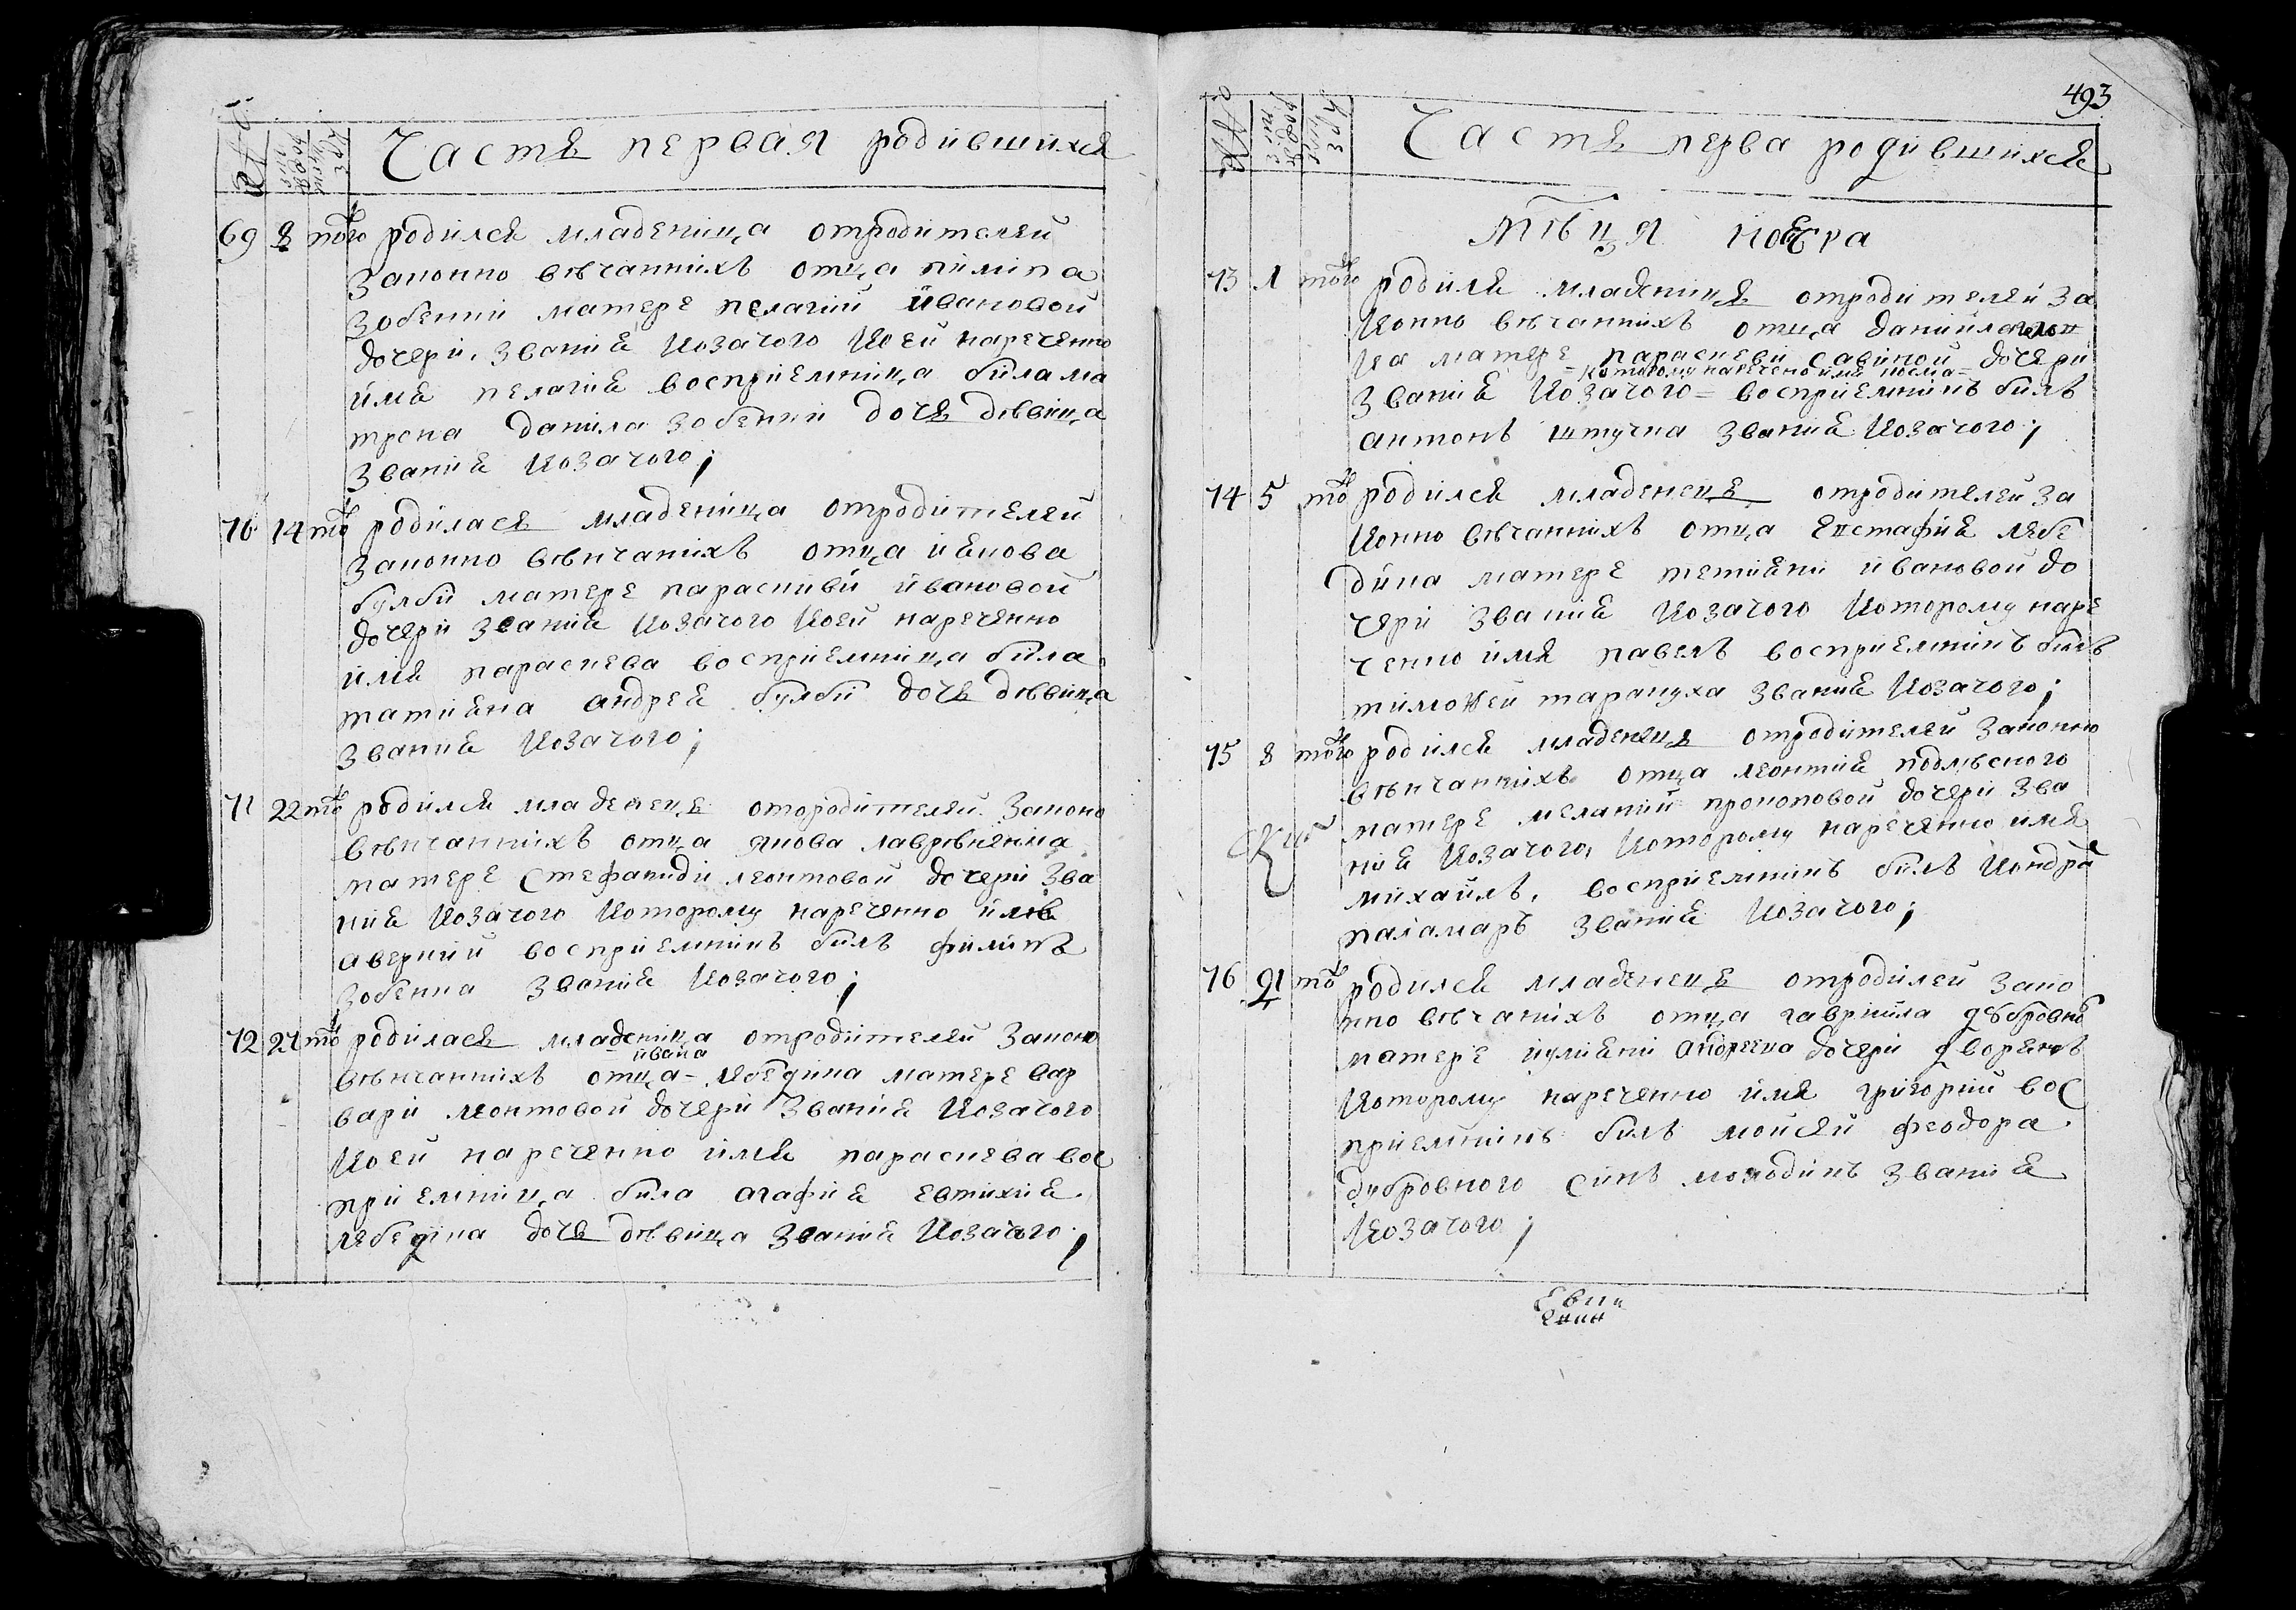 Часть первая родившихся
69 8 того родился младеница отродителей
законно вѣчанниxъ отца пилипа
зобенки матере пелагии Ивановой
дочери, звания козачого коей нареченно
имя пелагия восприемница била ма
трона данила зобенки дочь дѣвица
звания козачого;
70 14 того родилась младеница отродителей
законно вѣнчанихъ отца иякова
булби матере парасkиви ивановой
дочери звания козачого коей нареченно
имя параскева восприемница била
татияна андрея булби дочь дѣвица
звания козачого;
71 22 того родился младенець отородителей законо
вѣнчаннихъ отца якова
матере Стефаниди леонтовой дочери зва
ния козачого которому нареченно имя
аверкий восприемникъ билъ филипъ
зобенка звания козачого;
72 27 того родилась младеница отродителей законо
ивана
вѣнчаннихъ отца лебедина матере вар
вари леонтовой дочери звания козачого
коей нареченно имя параскева вос
приемница била агафия евтихия
лебедина дочь дѣвица звания козачого;
493
Часть перва родившихся
мѣсця ноября
73 1 того родился младеницъ отродителей за
конно вѣчаннихъ отца даниила
ка матере параскеви савиной дочери
которому наречено имя косма
звания козачого восприемникъ билъ
антонъ штучка звания козачого;
74 5 того родился младенець отродителей за
конно вѣчаннихъ отца Евстафия лебе
дина матере тетияни ивановой до
чери звания козачого которому наре
ченно имя павелъ восприемникъ билъ
тимофей тарануха звания козачого;
75 8 того родился младенець отродителей законно
вѣнчаннихъ отца леонтия подлѣсного
матере мелании прокоповой дочери зва
ния козачого, которому нареченно имя
михаилъ, восприемникъ билъ кондра
паламаръ звания козачого;
76 21 того родился младенець отродилей зако
нно вѣчанихъ отца гавриила дубровно
матере иулияни андреева дочери дворянъ
которому нареченно имя григорий вос
приемникъ билъ моисей феодора
дубровного синъ молодикъ звания
козачого;